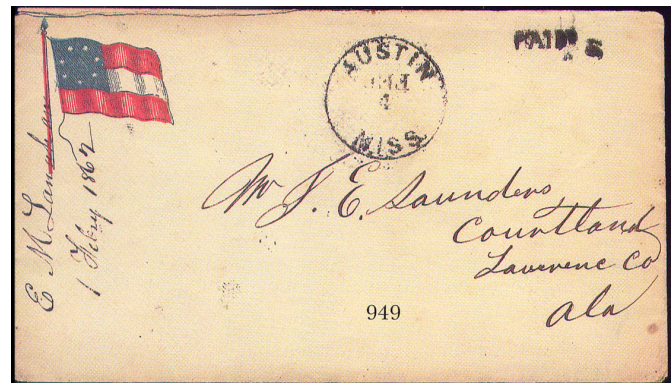 AUSTIN
4
MISS.
PAID 5
E M Lanham
1 Feby 1862
Mr J. E. Saunders
Courtland
Lawrence Co
Ala
949